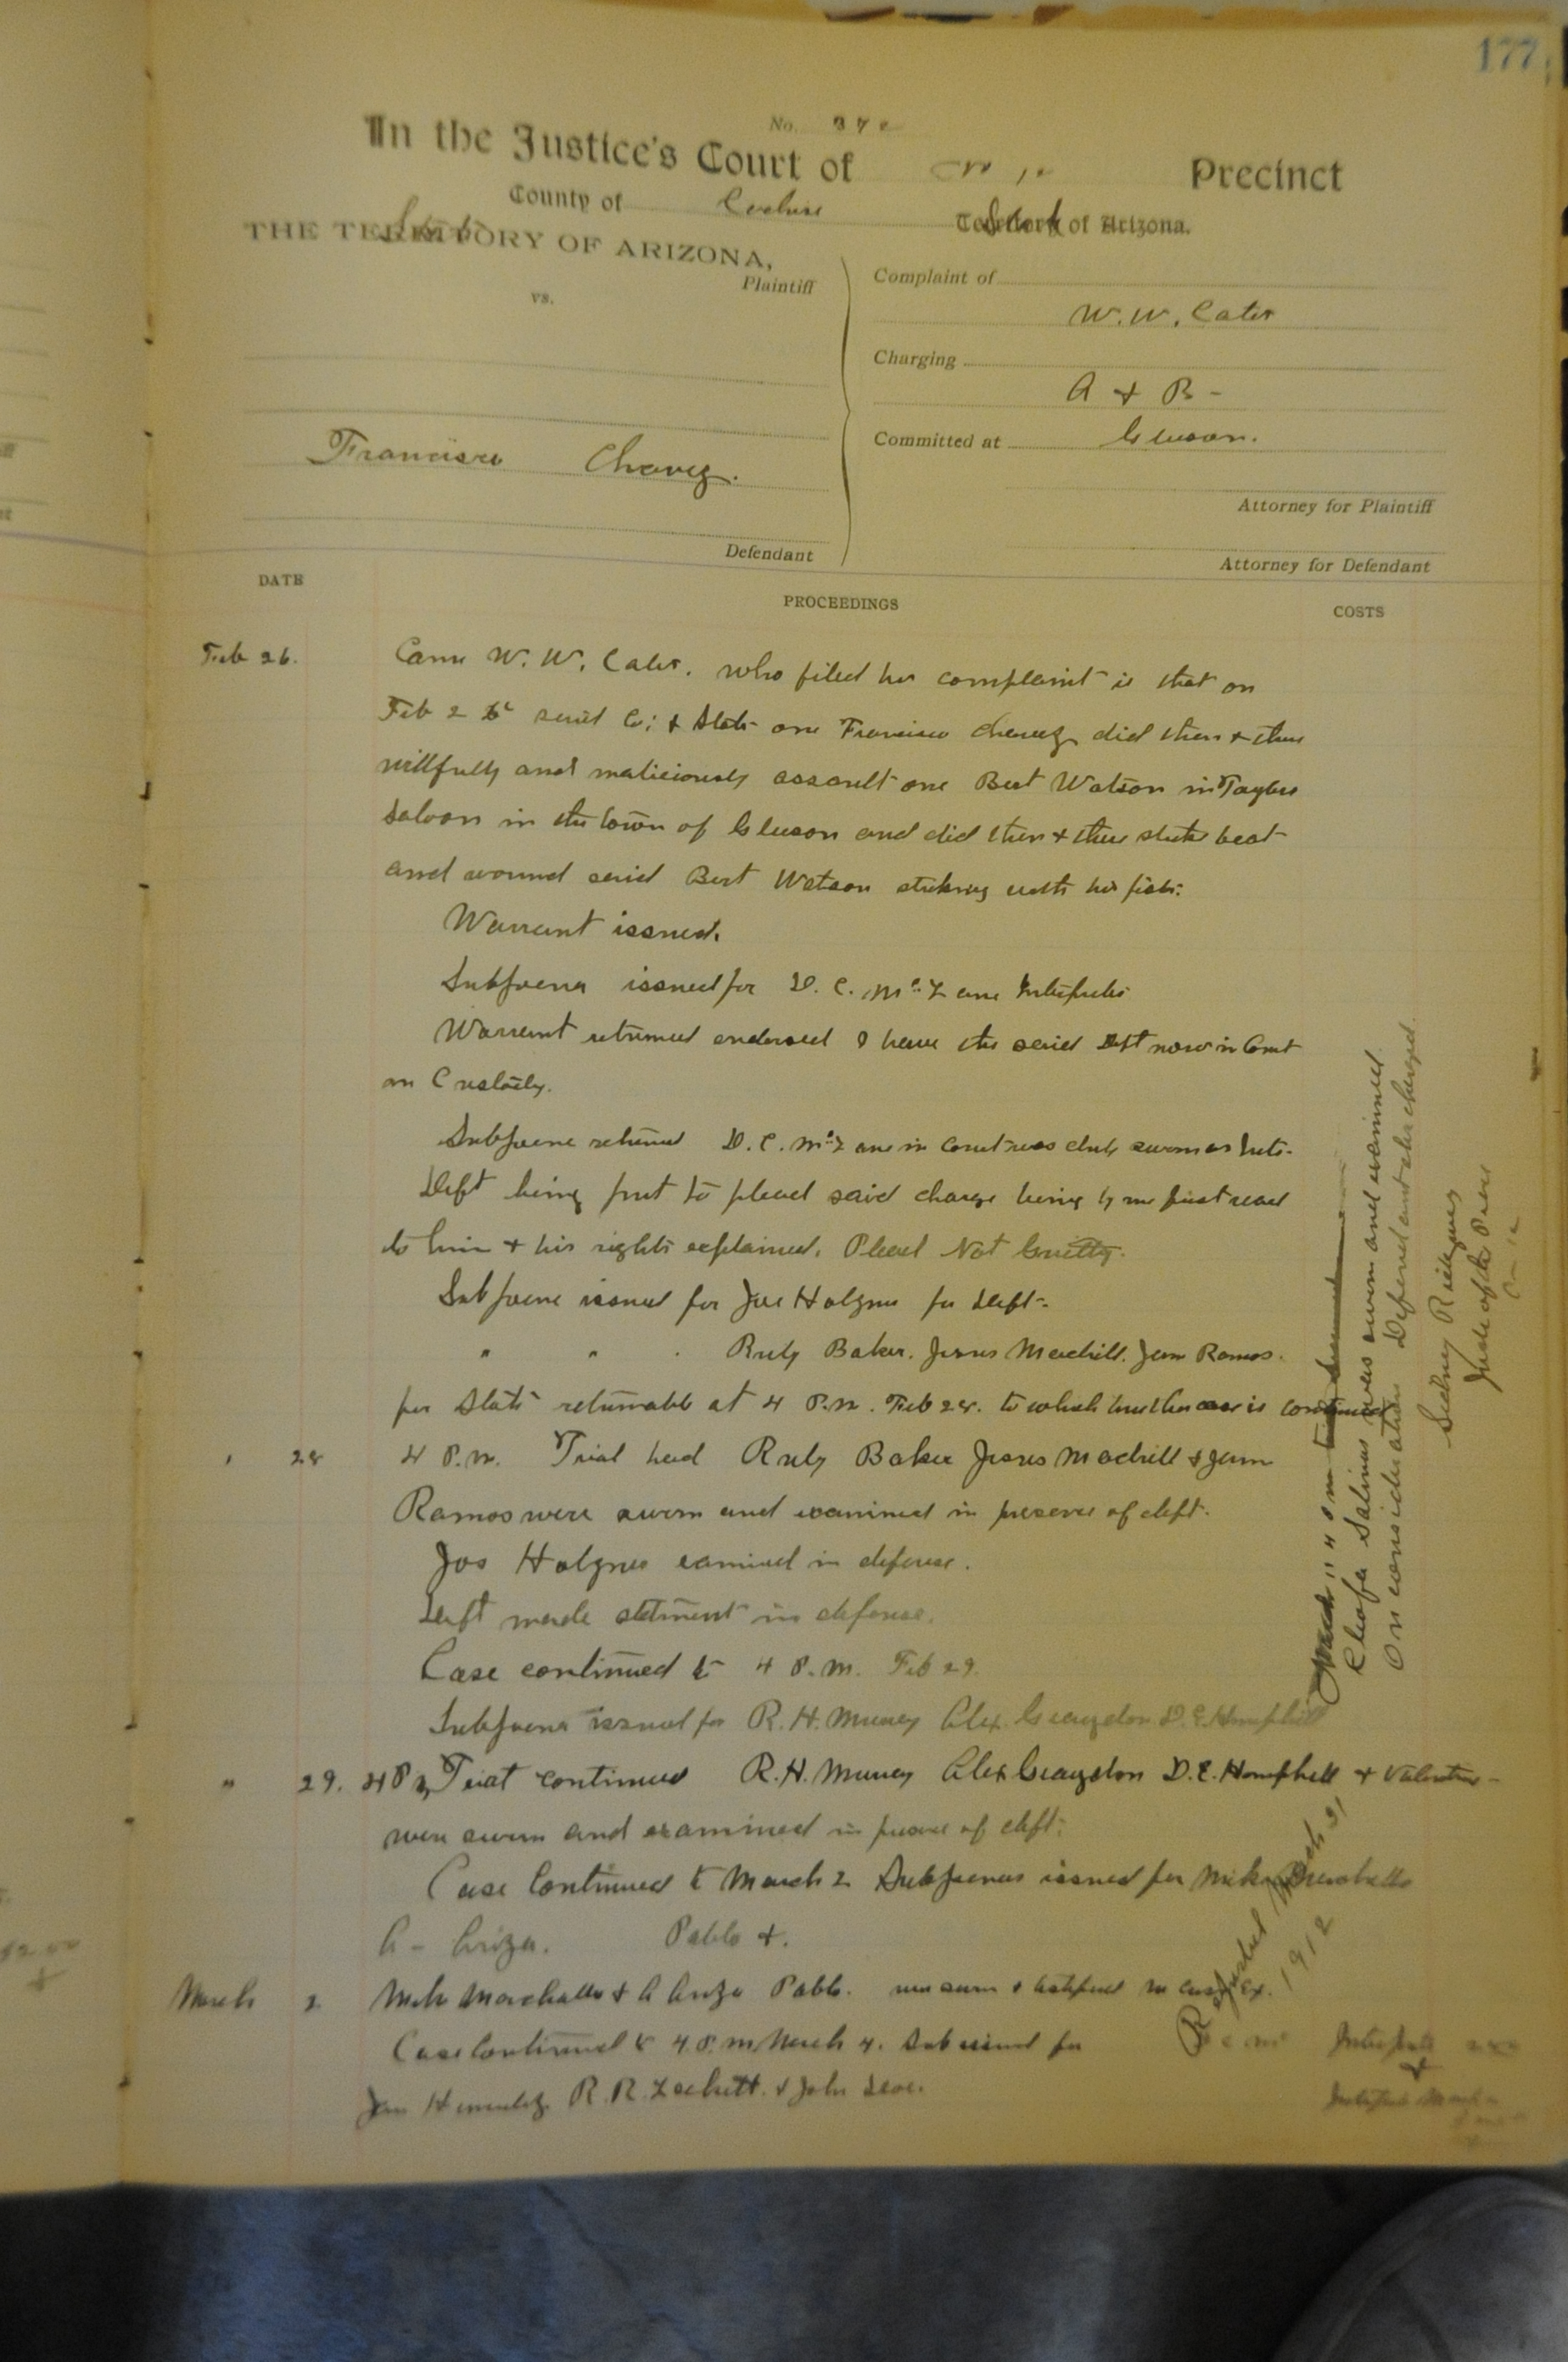 177
No. 370
In the Justice's Court of Precinct
County of Cochise State of Arizona.
THE State OF ARIZONA,
Plaintiff
vs.
Francisco Chavez.
Defendant
Complaint of
W. W. Cates
Charging
A + B -
Committed at Gleeson.
Attorney for Plaintiff
Attorney for Defendant
DATE PROCEEDINGS COSTS
Feb 26. Came W. W. Cates. who filed his complaint is that on
Feb 2 said Co; + State one Francisco Chavez did then + there
willfully and maliciously assault one Bert Watson in Taylors
Saloon in the town of Gleeson and did then + there strike beat
and wound said Bert Watson striking with his fists.
Warrant issued.
Subpoena issued for D. C. McLane Interpreter
Warrant returned endorsed I have the said Deft now in Court
in Custody.
Subpoena returned D. C. McLane in Court was duly sworn as Inter-
Deft being put to plead said charge being by me first read
to him + his rights explained. Plead Not Guilty.
Subpoena issued for Joe Holgun for Deft.
" " " Ruby Baker. Jesus Madrill. Juan Ramos.
for State returnable at 4 P.M. Feb 28. to which time the case is continued
" 28 4 P.M. Trial had Ruby Baker Jesus Madrill & Juan
Ramos were sworn and examined in presence of deft.
Jos Holgun examined in defense.
Deft made statment in defense.
Case continued to 4 P.M. Feb 29.
Subpoena issued for R. H. Muncy Alex Graydon D. E. Hemphill
" 29. 4 P.M. Trial continued R. H. Muncy Alex Graydon D. E. Hemphill +
were sworn and examined in presence of deft.
Case Continued to March 2 Subpoenas issued for Mike
G - Ariza. Pablo +.
March 2 Mike + G Ariza Pablo. were sworn + testified in
Case Continued to 4 P.M. March 4. Sub issued for
Juan Hernandez R. R. Lockett. + John
Salinas was sworn and examined
On consideration Defend
Sidney
Justice of the Peace
Reported March 31
1912
Interpreter